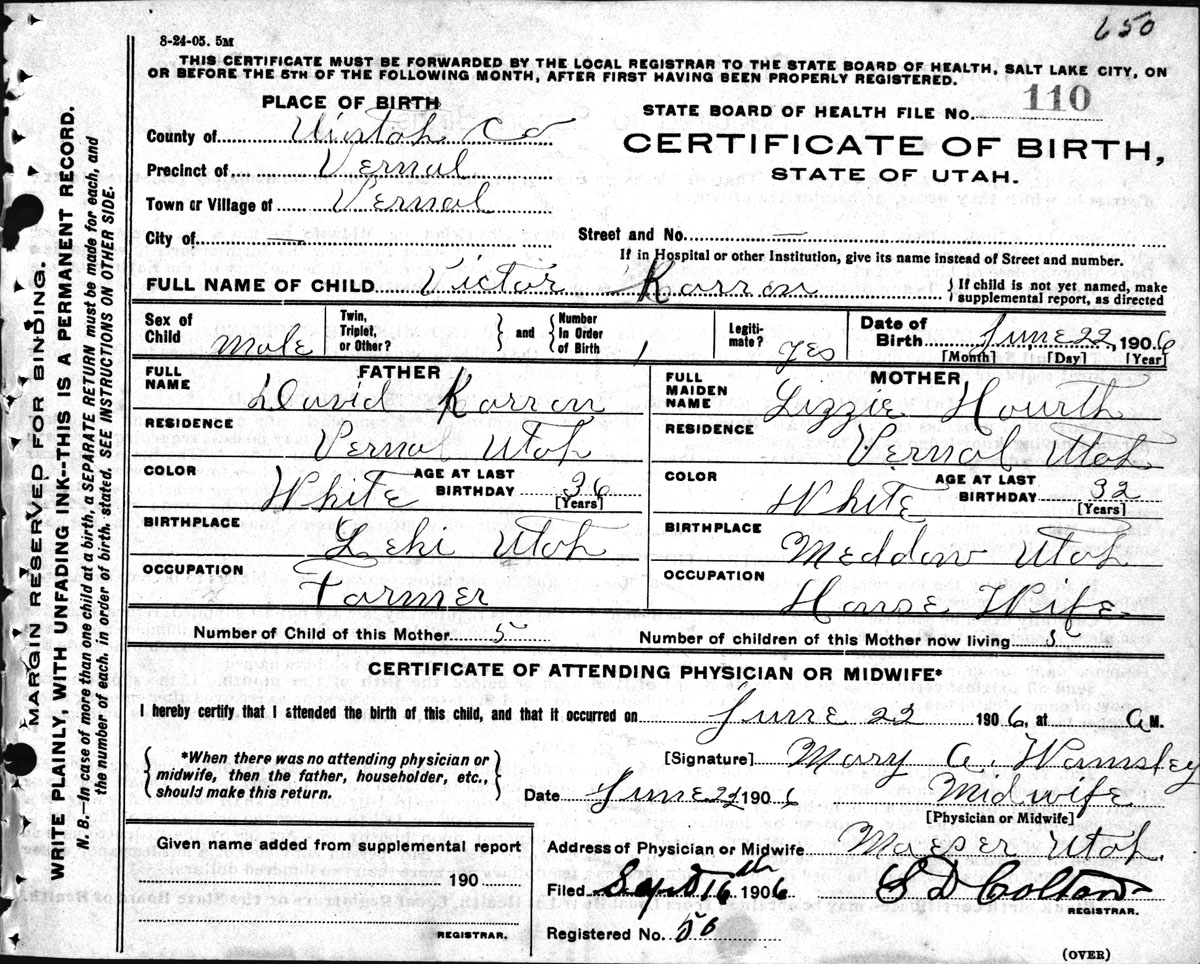 650
8-24-05. 5M
THIS CERTIFICATE MUST BE FORWARDED BY THE LOCAL REGISTRAR TO THE STATE BOARD OF HEALTH, SALT LAKE CITY, ON
OR BEFORE THE 5TH OF THE FOLLOWING MONTH, AFTER FIRST HAVING BEEN PROPERLY REGISTERED.
PLACE OF BIRTH
STATE BOARD OF HEALTH FILE No. 110
County of Uintah Co
CERTIFICATE OF BIRTH,
STATE OF UTAH.
Precinct of Vernal
Town or Village of Vernal
City of — Street and No. —
If in Hospital or other Institution, give its name instead of Street and number.
FULL NAME OF CHILD Victor Karren { If child is not yet named, make supplemental report, as directed
Sex of Child Male Twin, Triplet, or Other? } and { Number In Order of Birth 1 Legiti- mate? yes Date of Birth June 22, 1906
[Month] [Day] [Year]
FATHER
FULL NAME David Karren
RESIDENCE Vernal Utah
COLOR White AGE AT LAST BIRTHDAY 36 [Years]
BIRTHPLACE Lehi Utah
OCCUPATION Farmer
MOTHER
FULL MAIDEN NAME Lizzie Hourth
RESIDENCE Vernal Utah
COLOR White AGE AT LAST BIRTHDAY 32 [Years]
BIRTHPLACE Meddow Utah
OCCUPATION House Wife
Number of Child of this Mother 5 Number of children of this Mother now living 5
CERTIFICATE OF ATTENDING PHYSICIAN OR MIDWIFE*
I hereby certify that I attended the birth of this child, and that it occurred on June 22 1906, at A M.
{ *When there was no attending physician or
midwife, then the father, householder, etc.,
should make this return. }
[Signature] Mary A. Wamsley
Date June 22 1906 Midwife
[Physician or Midwife]
Given name added from supplemental report
190
REGISTRAR.
Address of Physician or Midwife Maeser Utah
Filed Sept 16th 1906 S D Colton
REGISTRAR.
Registered No. 56
(OVER)
MARGIN RESERVED FOR BINDING.
WRITE PLAINLY, WITH UNFADING INK--THIS IS A PERMANENT RECORD.
N. B.--In case of more than one child at a birth, a SEPARATE RETURN must be made for each, and
the number of each, in order of birth, stated. SEE INSTRUCTIONS ON OTHER SIDE.